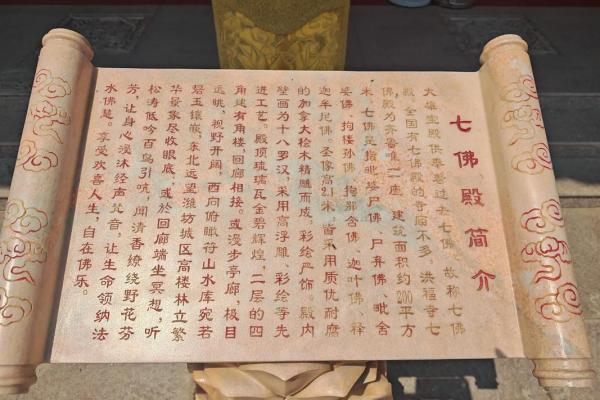 七佛殿简介
大雄宝殿供奉着过去七佛，故称七佛
殿。全国有七佛殿的寺庙不多，洪福寺七
佛殿为齐鲁唯一一座。建筑面积约200平方
米。七佛是指毗婆尸佛、尸弃佛、毗舍
婆佛、拘楼孙佛、拘那含佛、迦叶佛、释
迦牟尼佛。圣像高2.1米，皆采用质优耐腐
的加拿大桧木精雕而成，彩绘严饰。殿内
壁画为十八罗汉，采用高浮雕、彩绘等先
进工艺。殿顶琉璃瓦金碧辉煌，二层的四
角建有角楼回廊相接。或漫步亭廊，极目
远眺，视野开阔，西向俯瞰符山水库宛若
碧玉镶嵌，东北远望潍坊城区高楼林立繁
华景象尽收眼底，或於回廊端坐冥想，听
松涛低吟百鸟引吭，闻清香缭绕野花芬
芳，让身心浸沐经声梵音，让生命领纳法
水佛慧。享受欢喜人生，自在佛乐。